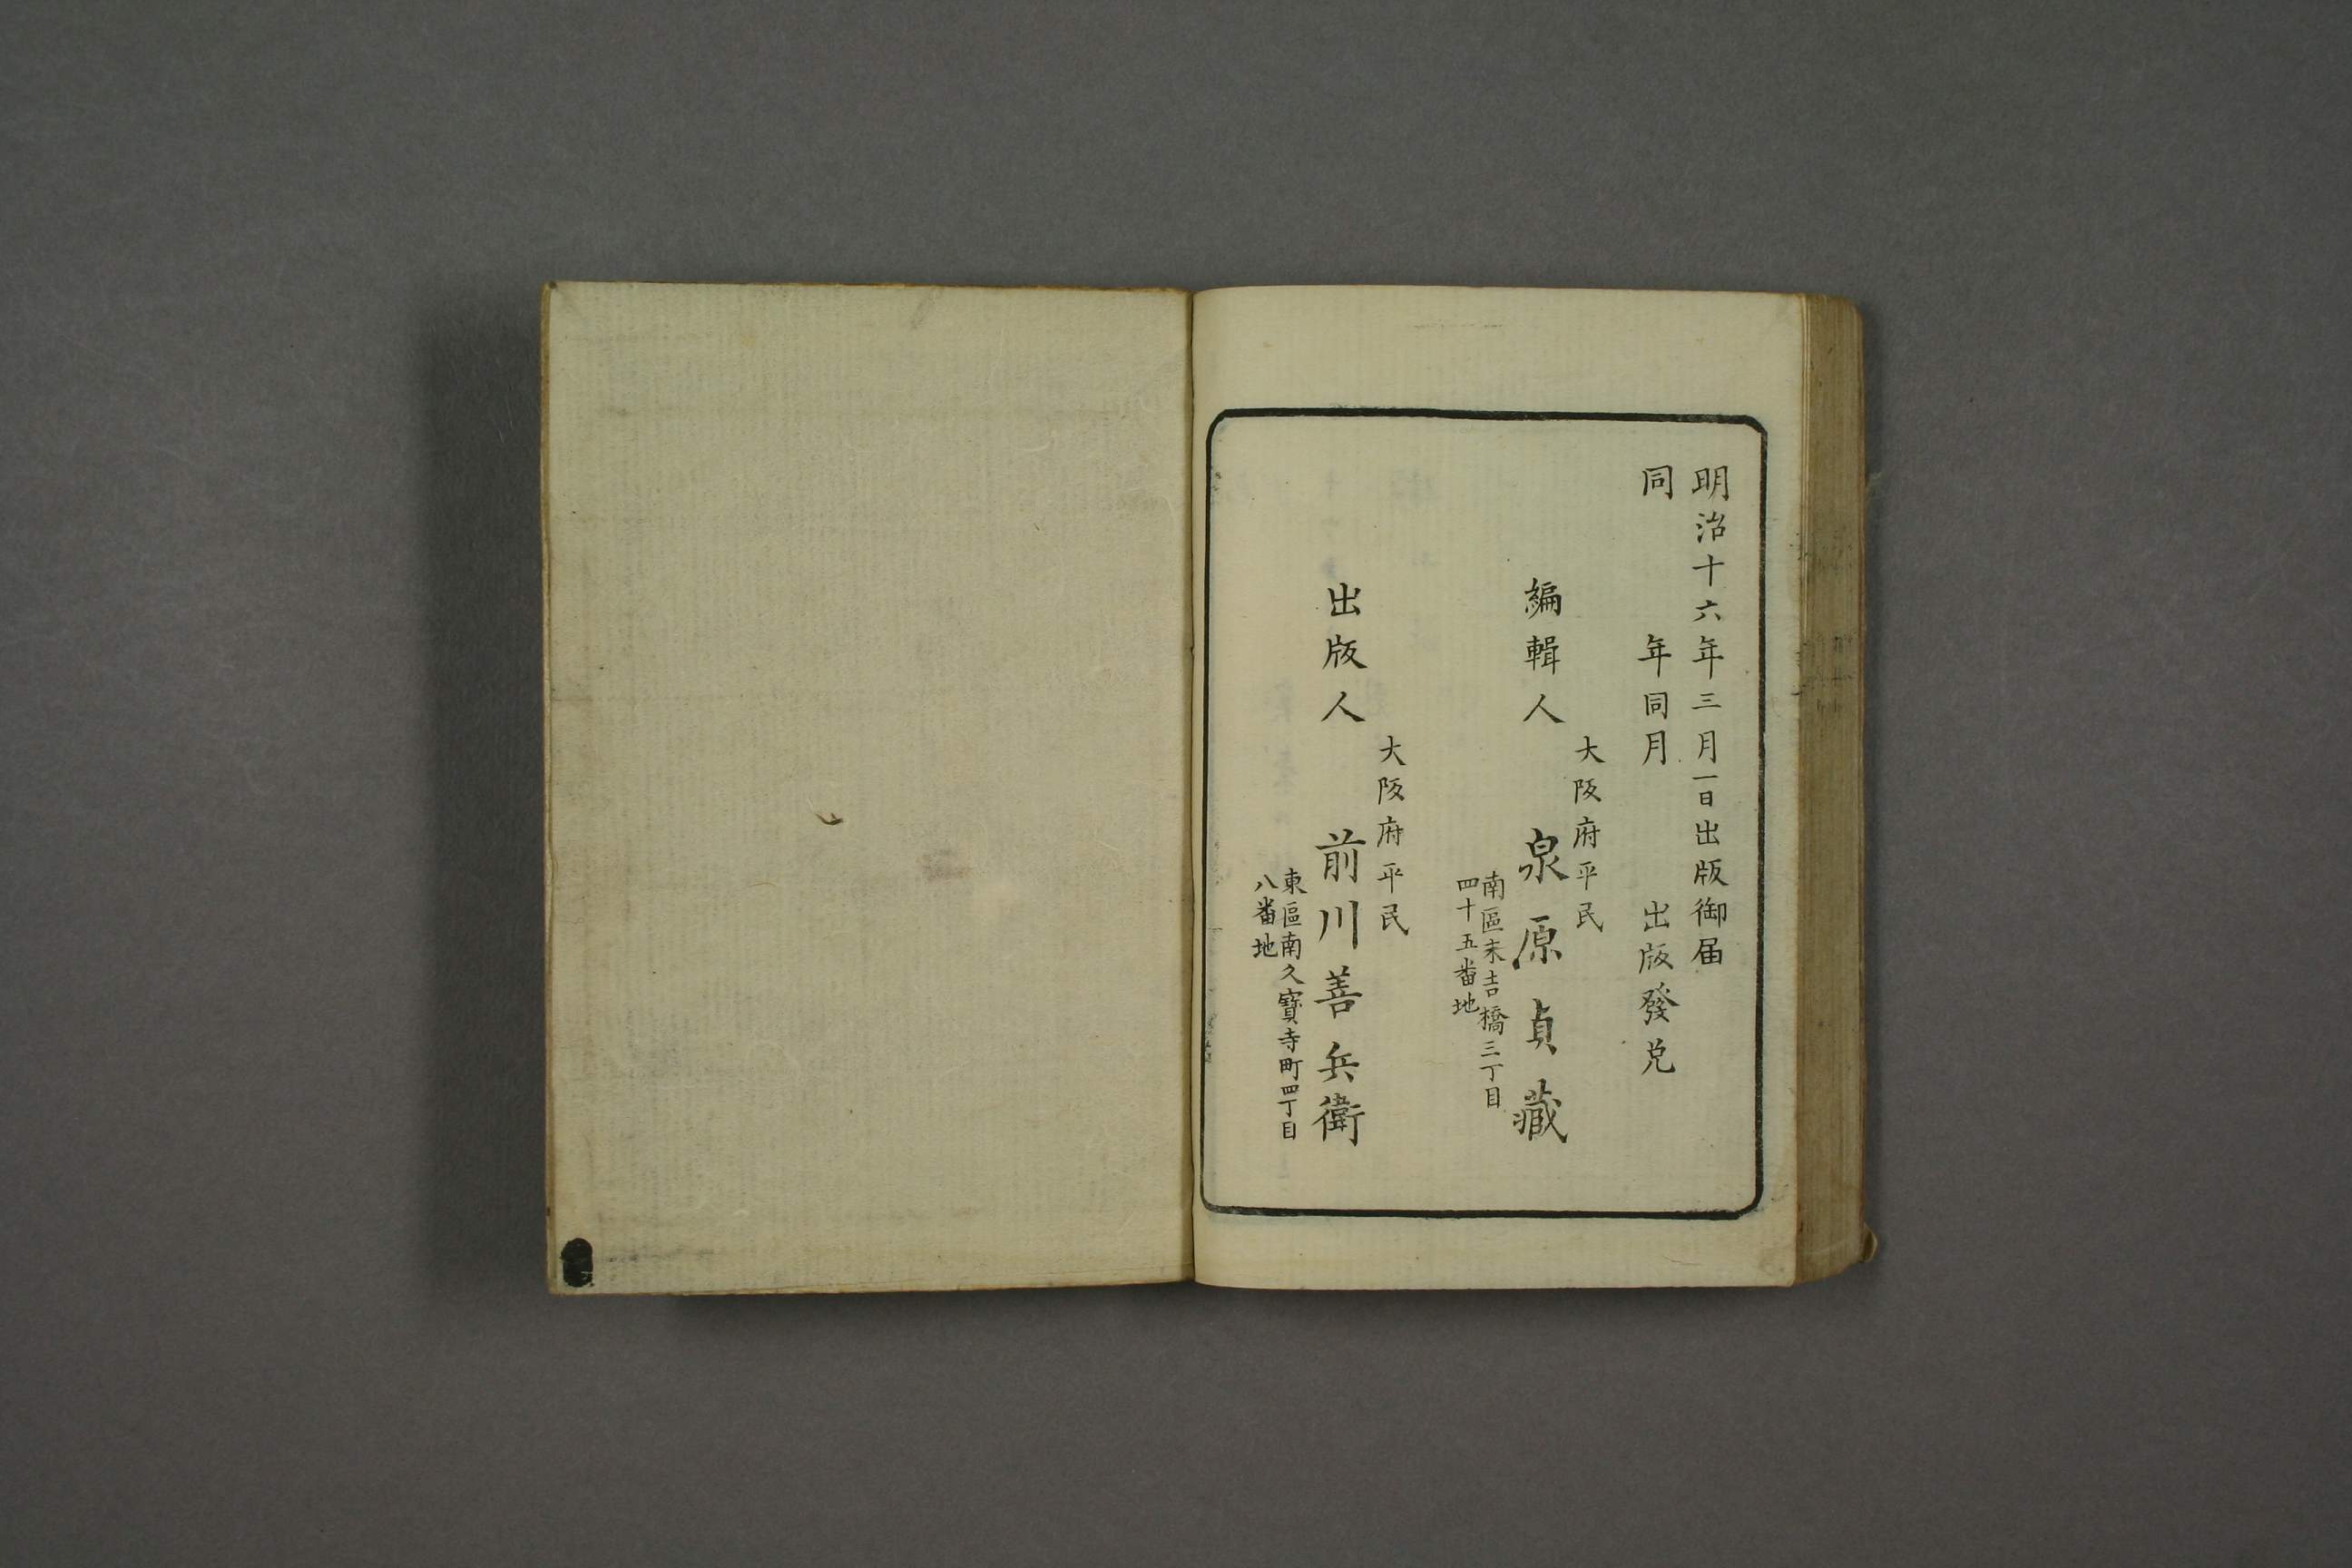 明治十六年三月一日出版御届
同年同月出版發兌
大阪府平民
編輯人 泉原貞藏
南區末吉橋三丁目
四十五番地
大阪府平民
出版人 前川善兵衛
東區南久寶寺町四丁目
八番地